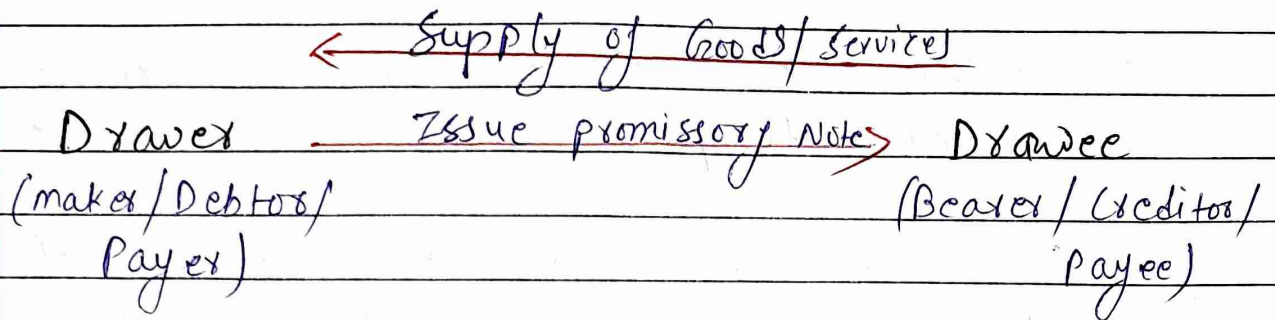 Supply of Goods/services
Drawer Issue promissory Note Drawee
(maker/Debtor/ (Bearer/Creditor/
Payer) Payee)